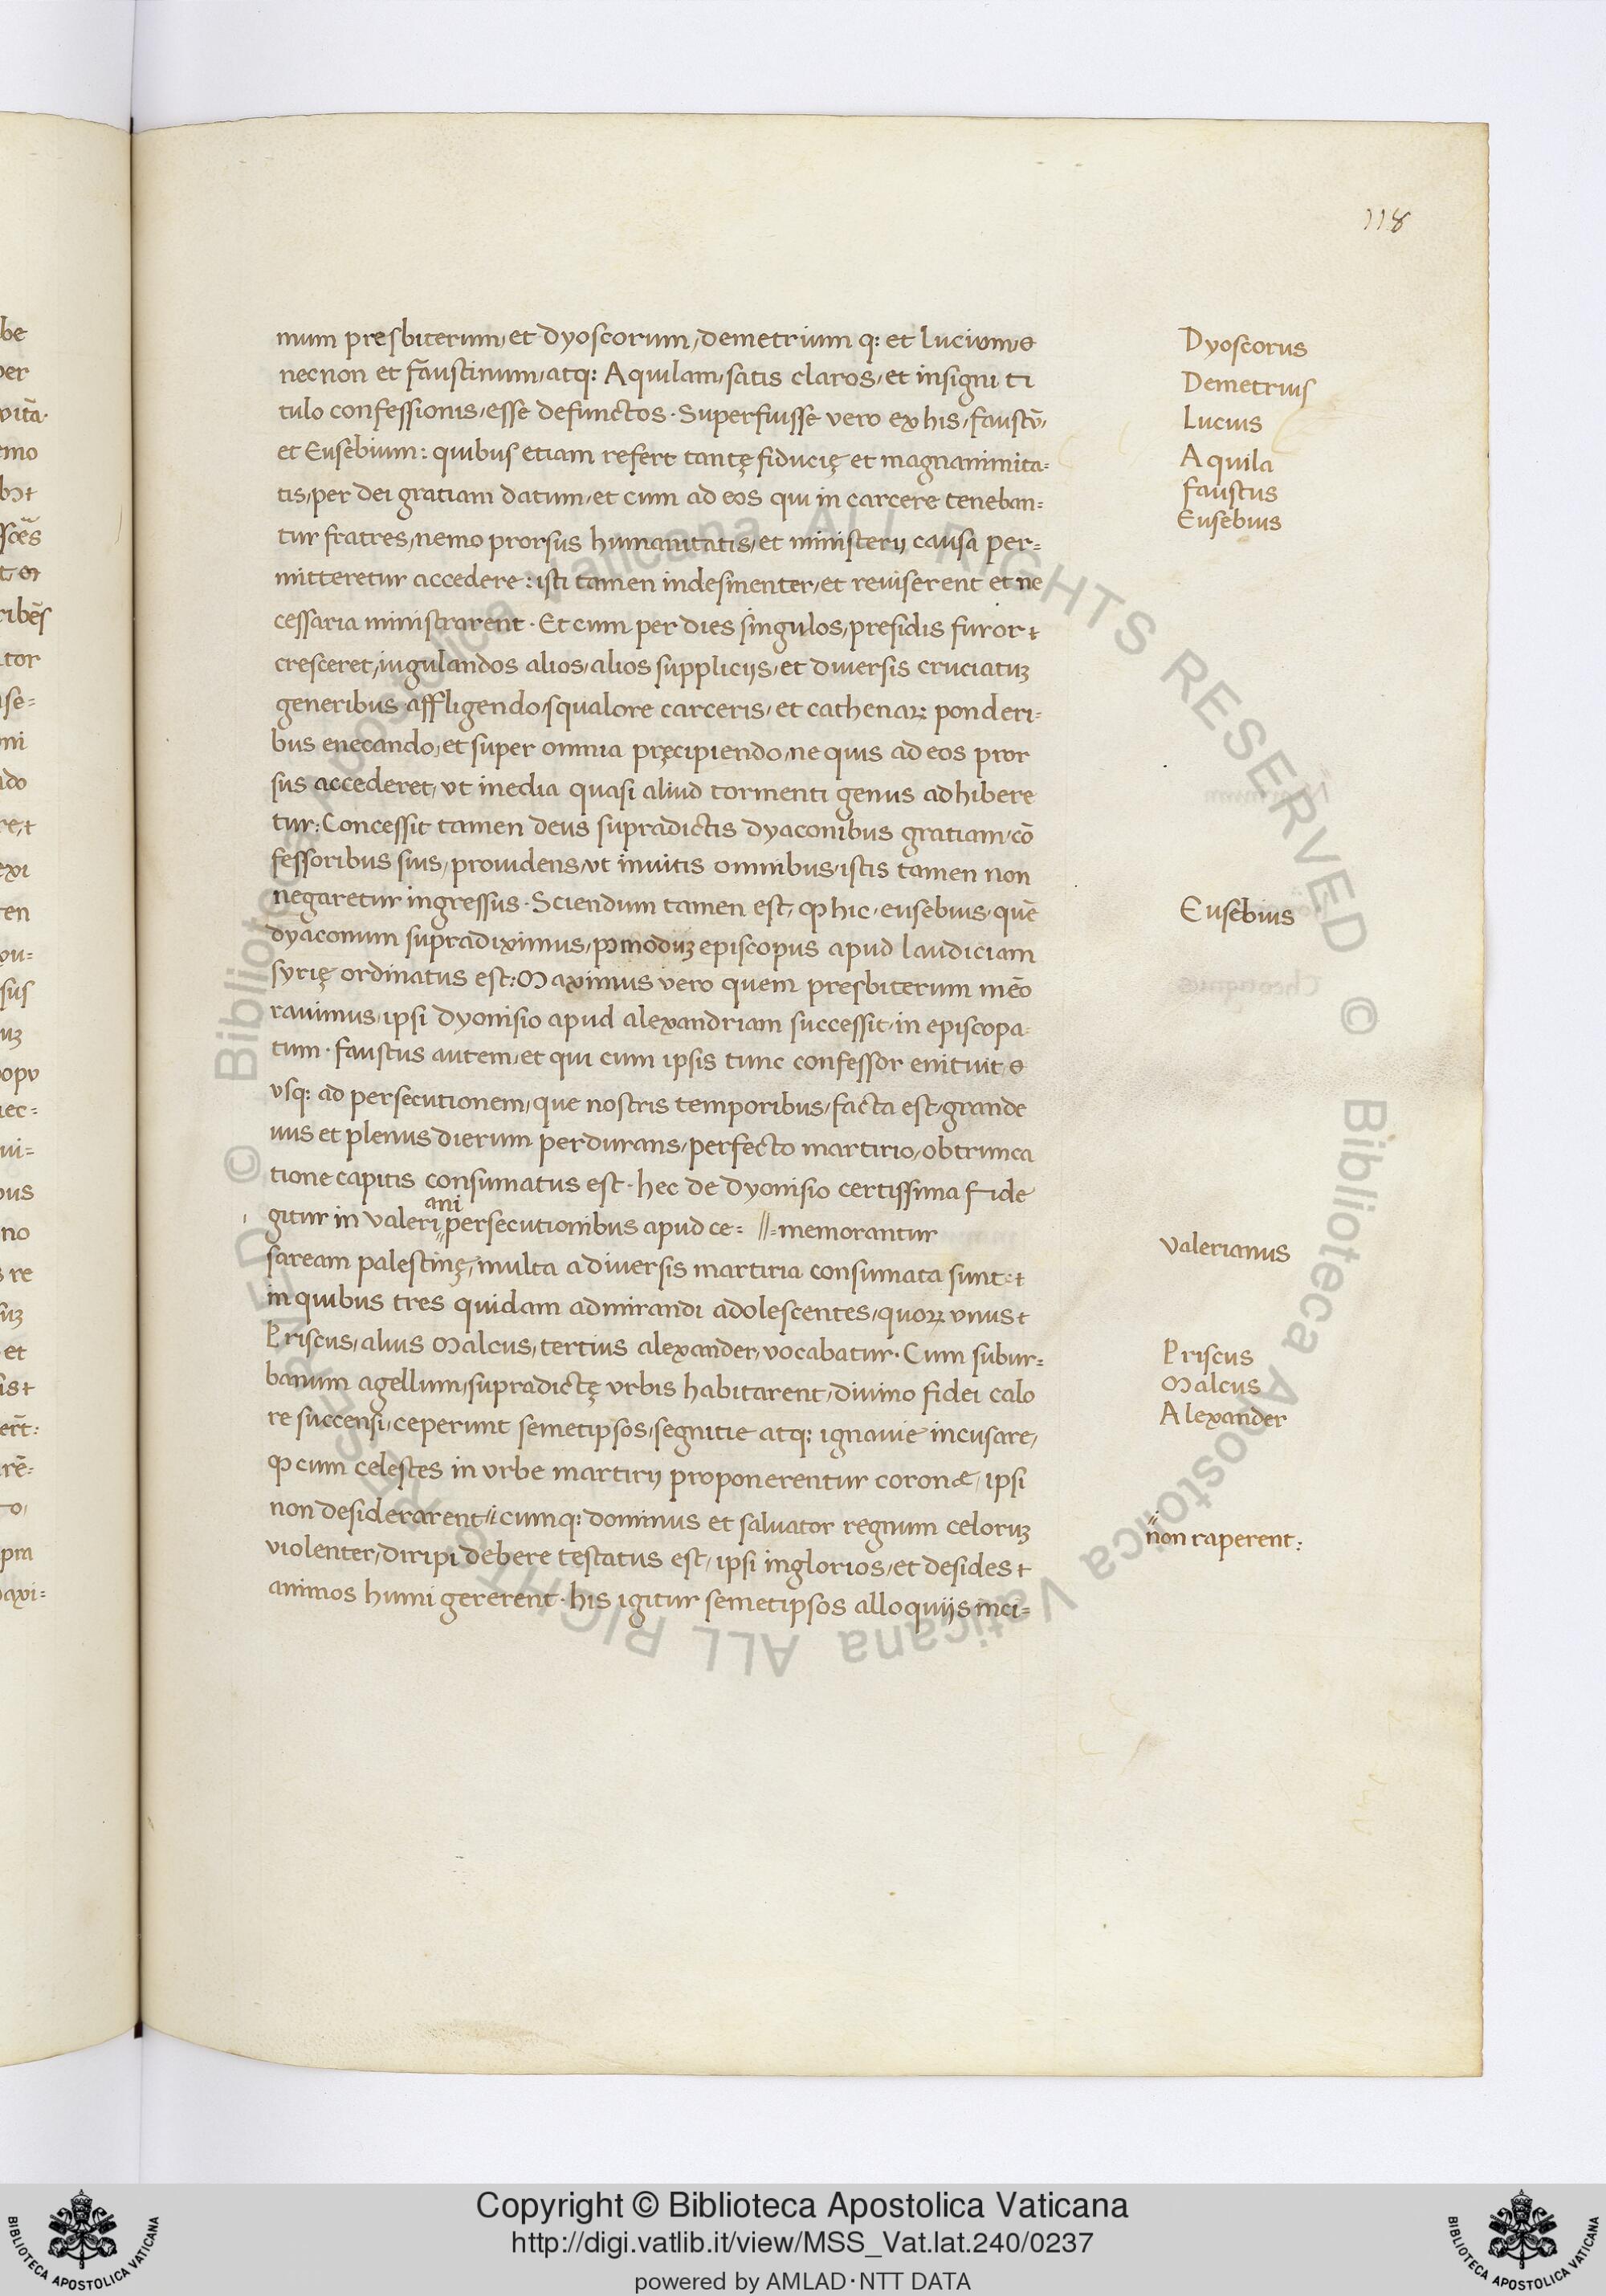 118
mum presbiterum, et dyoscorum, demetrium q: et lucium, &
necnon et faustinum, atq: Aquilam, satis claros, et insigni ti
tulo confessionis, esse defunctos. Superfuisse vero ex his, faustū,
et Eusebium: quibus etiam refert tantę fiducię et magnanimita=
tis, per dei gratiam datum, et cum ad eos qui in carcere teneban=
tur fratres, nemo prorsus humanitatis, et ministerij causa per=
mitteretur accedere: isti tamen indesinenter, et reviserent et ne
cessaria ministrarent. Et cum per dies singulos, presidis furor
cresceret, iugulandos alios, alios supplicijs, et diversis cruciatuꝫ
generibus affligendo, squalore carceris, et cathenaꝝ ponderi=
bus enecando, et super omnia pręcipiendo, ne quis ad eos pror
sus accederet, vt inedia quasi aliud tormenti genus adhibere
tur: Concessit tamen deus supradictis dyaconibus gratiam, cō
fessoribus suis, providens, vt invitis omnibus, istis tamen non
negaretur ingressus. Sciendum tamen est, ꝙ hic, eusebius, quē
dyaconum supradiximus, pꝰmoduꝫ episcopus apud laudiciam
syrię ordinatus est: Maximus vero quem presbiterum mēo
ravimus, ipsi dyonisio apud alexandriam successit, in episcopa-
tum. faustus autem, et qui cum ipsis tunc confessor enituit &
vsq: ad persecutionem, que nostris temporibus, facta est, grande
vus et plenus dierum perdurans, perfecto martirio, obtrunca
tione capitis consumatus est. hec de dyonisio certissima fide
ani
gitur in valeri persecutionibus apud ce= //=memorantur
saream palestinę, multa a diversis martiria consumata sunt:
in quibus tres quidam admirandi adolescentes, quoꝝ vnus
Priscus, alius Malcus, tertius alexander, vocabatur. Cum subur=
banum agellum, supradictę vrbis habitarent, divino fidei calo
re succensi, ceperunt semetipsos, segnitie atq: ignavie incusare,
ꝙ cum celestes in vrbe martirij proponerentur coronæ, ipsi
non desiderarent, cumq: dominus et salvator regnum celoruꝫ
violenter, diripi debere testatus est, ipsi inglorios, et desides
animos humi gererent. his igitur semetipsos alloquijs inci=
Dyoscorus
Demetrius
Lucius
Aquila
faustus
Eusebius
Eusebius
valerianus
Priscus
Malcus
Alexander
non raperent:
Copyright © Biblioteca Apostolica Vaticana
http://digi.vatlib.it/view/MSS_Vat.lat.240/0237
powered by AMLAD·NTT DATA
© Biblioteca Apostolica Vaticana ALL RIGHTS RESERVED
BIBLIOTECA APOSTOLICA VATICANA
BIBLIOTECA APOSTOLICA VATICANA